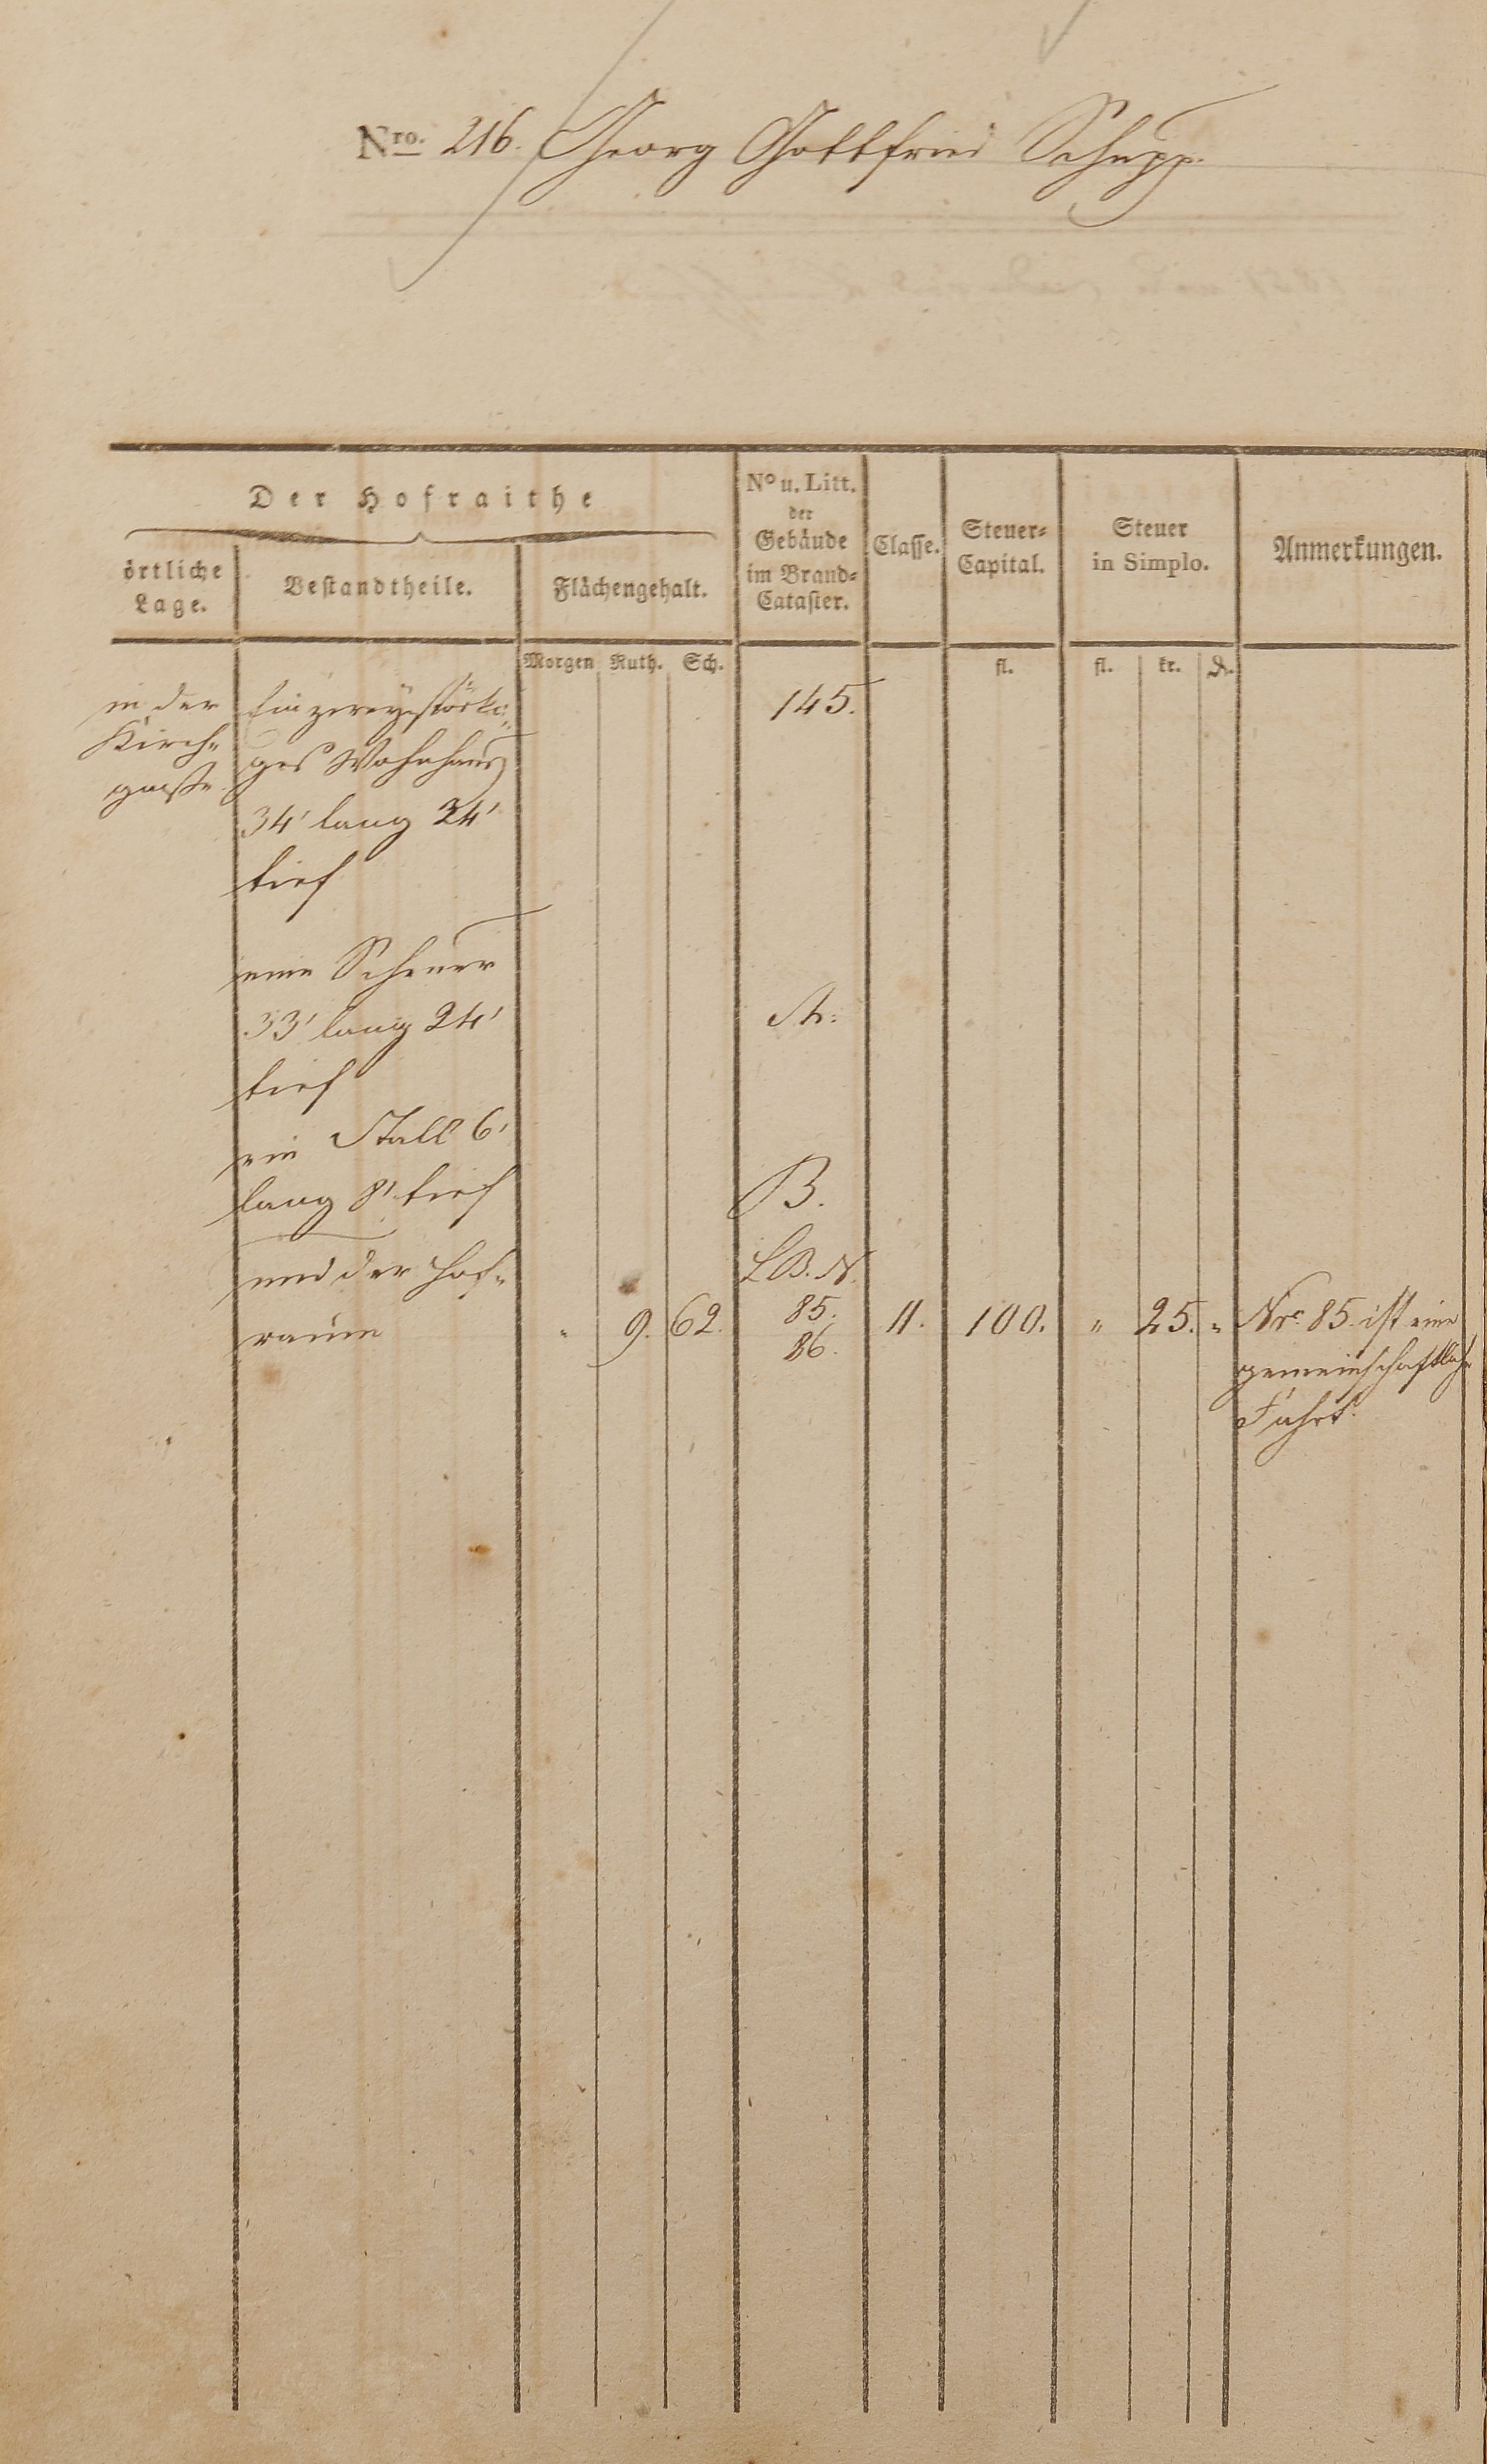 Nro. 216. Georg Gottfried Schupp.
Der Hofraithe
örtliche
Lage.
Bestandtheile.
Flächengehalt.
No u. Litt.
der
Gebäude
im Brand-
Cataster.
Classe.
Steuer-
Capital.
Steuer
in Simplo.
Anmerkungen.
Morgen Ruth. Sch.
fl.
fl. kr. ₰.
in der
Kirch-
gasse
Ein zweystöcki-
ges Wohnhaus
34' lang 24'
tief
145.
eine Scheuer
33' lang 24'
tief
A.
ein Stall 6'
lang 8' tief
B.
und der Hof-
raum
" 9. 62.
L.B.N.
85.
86.
11. 100. " 25. "
Nro 85. ist eine
gemeinschaftliche
Fahrt.